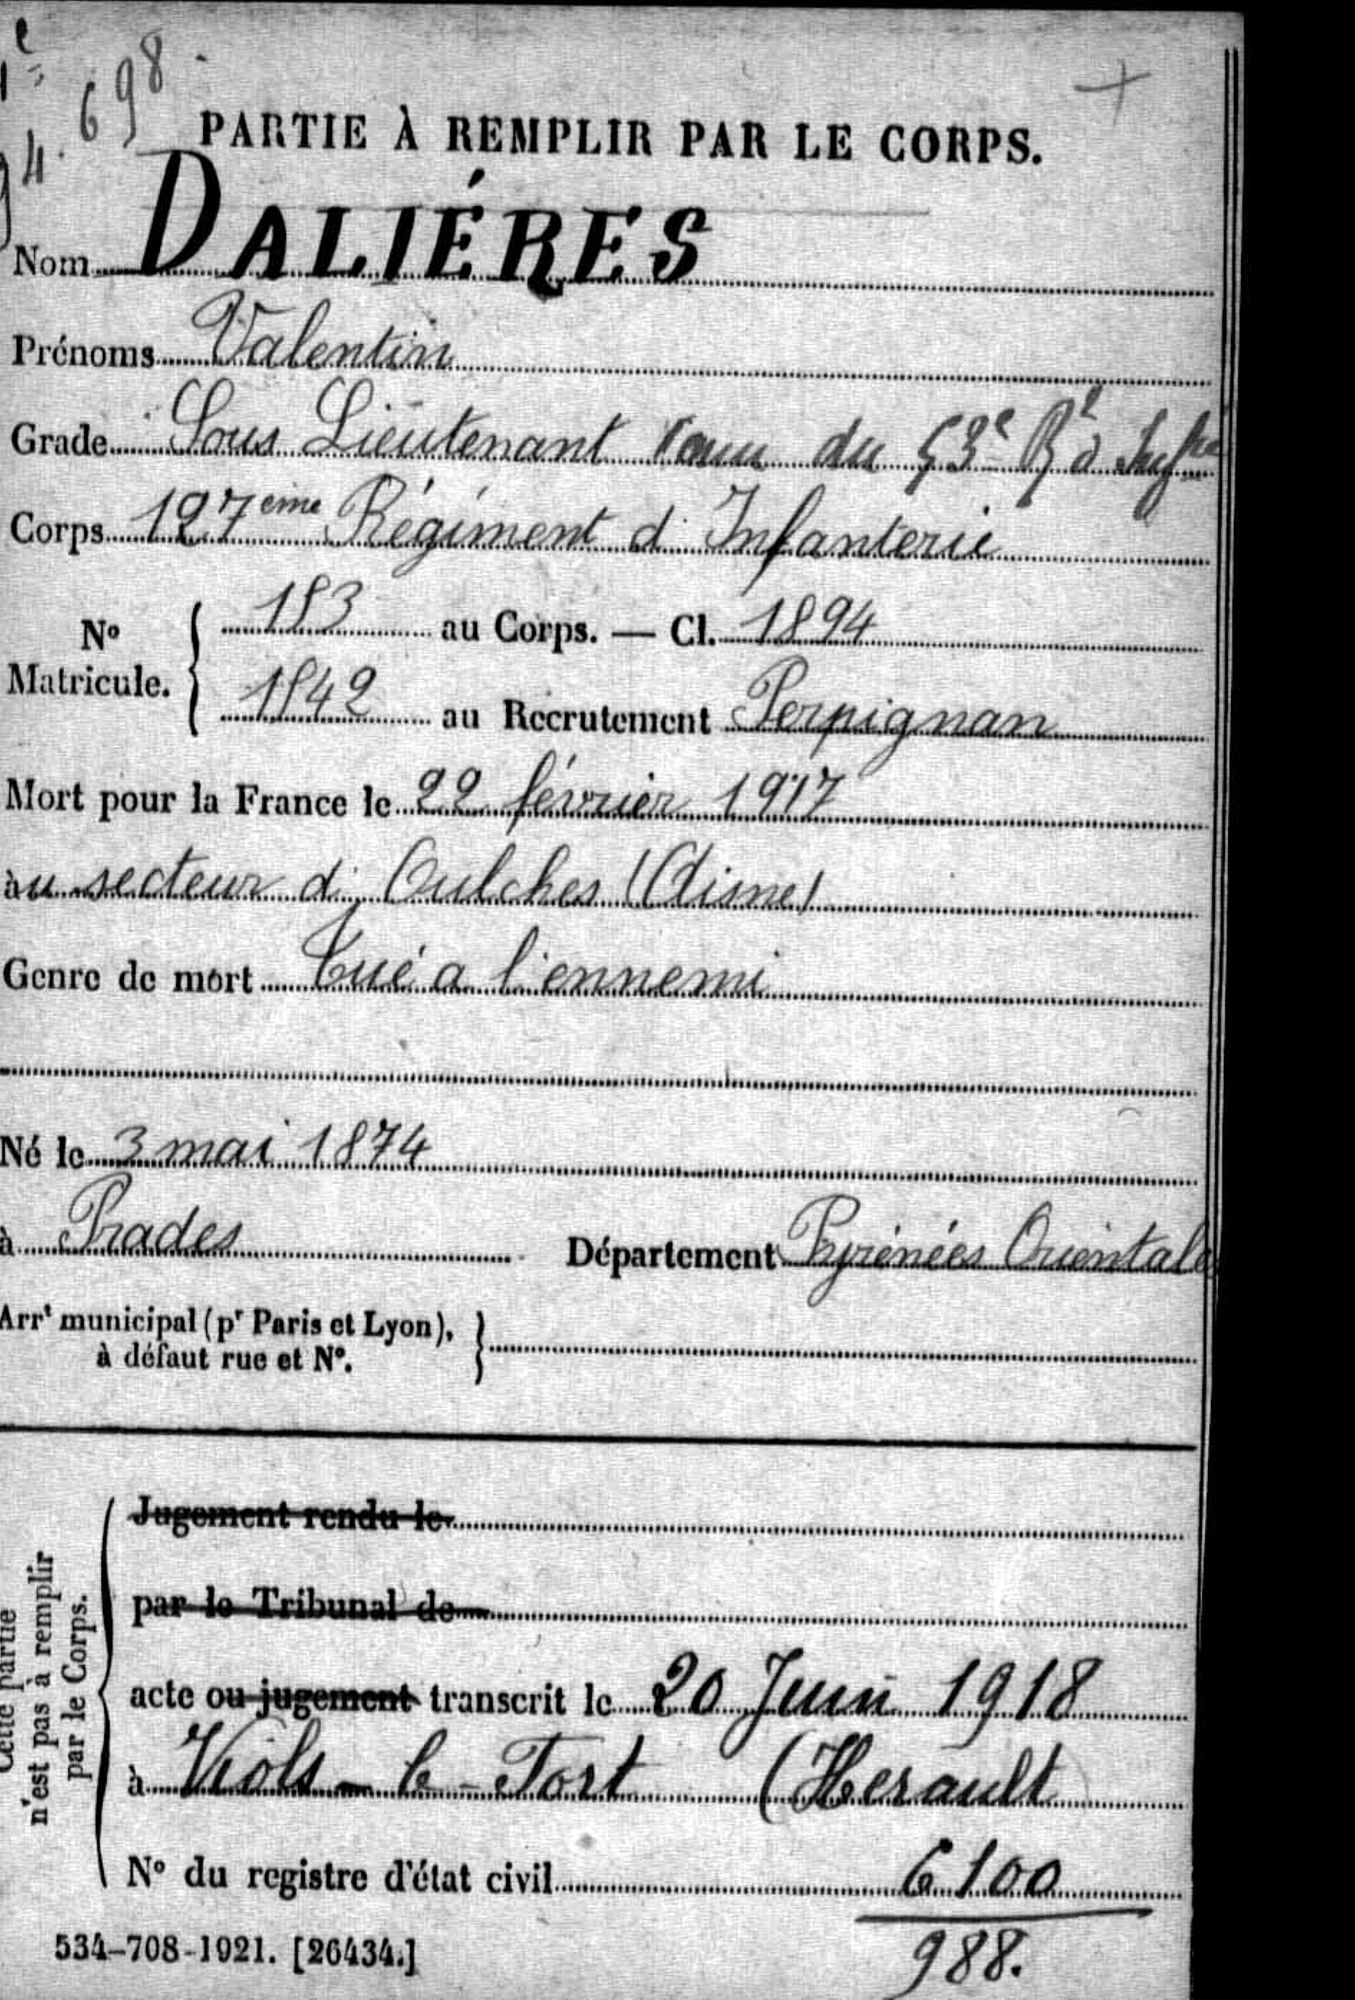 698.
4.
PARTIE À REMPLIR PAR LE CORPS.
Nom DALIÉRES
Prénoms Valentin
Grade Sous Lieutenant venu du 53e Rt d'Inftie
Corps 127eme Régiment d'Infanterie
No Matricule. { 183 au Corps. — Cl. 1894
1842 au Recrutement Perpignan
Mort pour la France le 22 février 1917
au secteur d'Oulches (Aisne)
Genre de mort Tué a l'ennemi
Né le 3 mai 1874
à Prades Département Pyrénées Orientales
Arrt municipal (pr Paris et Lyon), }
à défaut rue et No.
Cette partie
n'est pas à remplir
par le Corps.
Jugement rendu le
par le Tribunal de
acte ou jugement transcrit le 20 Juin 1918
à Viols-le-Fort (Herault
No du registre d'état civil 6100
534-708-1921. [26434.] 988.